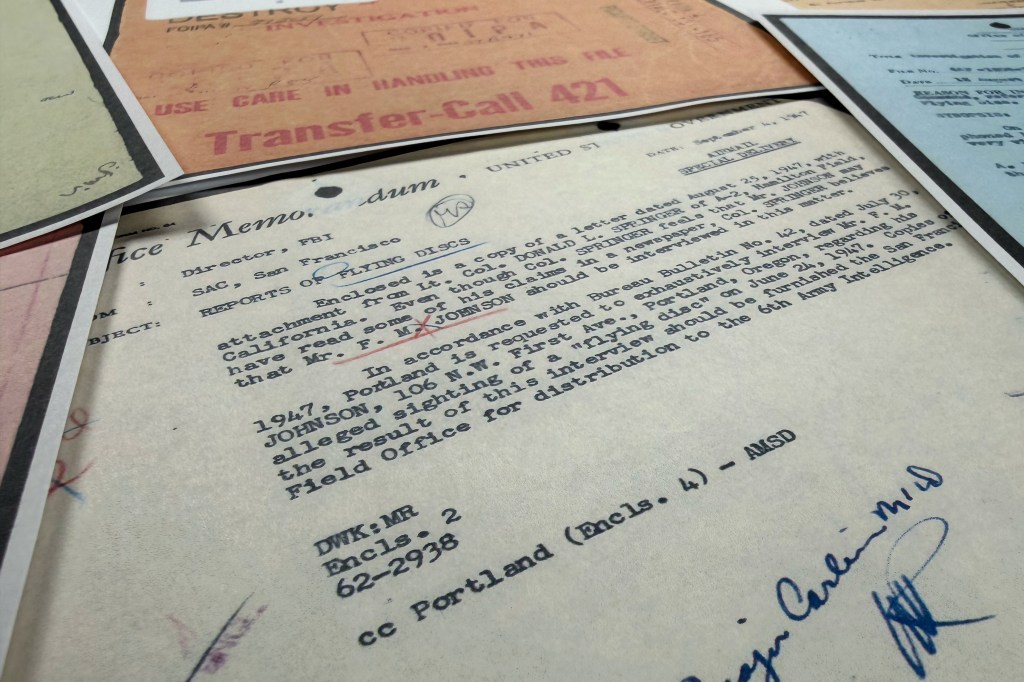 DESTROY
FOIPA #
INVESTIGATION
USE CARE IN HANDLING THIS FILE
Transfer-Call 421
UNITED ST
DATE: September 4, 1947
AIRMAIL
SPECIAL DELIVERY
fice Memo dum
Director, FBI
SAC, San Francisco
BJECT: REPORTS OF FLYING DISCS
Enclosed is a copy of a letter dated August 25, 1947, with
attachment from Lt. Col. DONALD L. SPRINGER of A-2, Hamilton Field,
California. Even though Col. SPRINGER feels that Mr. JOHNSON may
have read some of his claims in a newspaper, Col. SPRINGER believes
that Mr. F. M. JOHNSON should be interviewed in this matter.
In accordance with Bureau Bulletin No. 42, dated July 30,
1947, Portland is requested to exhaustively interview Mr. F. M.
JOHNSON, 106 N.W. First Ave., Portland, Oregon, regarding his
alleged sighting of a "flying disc" on June 24, 1947. Copies of
the result of this interview should be furnished the San Francis
Field Office for distribution to the 6th Army intelligence.
DWK:MR
Encls. 2
62-2938
cc Portland (Encls. 4) - AMSD
REASON FOR IN